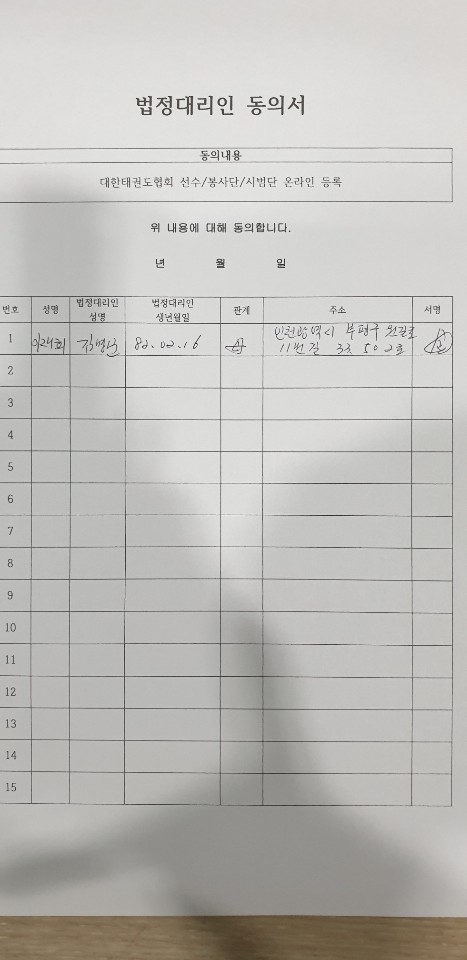 법정대리인 동의서
동의내용
대한태권도협회 선수/봉사단/시범단 온라인 등록
위 내용에 대해 동의합니다.
년 월 일
번호 성명 법정대리인 성명 법정대리인 생년월일 관계 주소 서명
1 82.02.16 모 인천광역시 부평구
11번길 502호
2
3
4
5
6
7
8
9
10
11
12
13
14
15